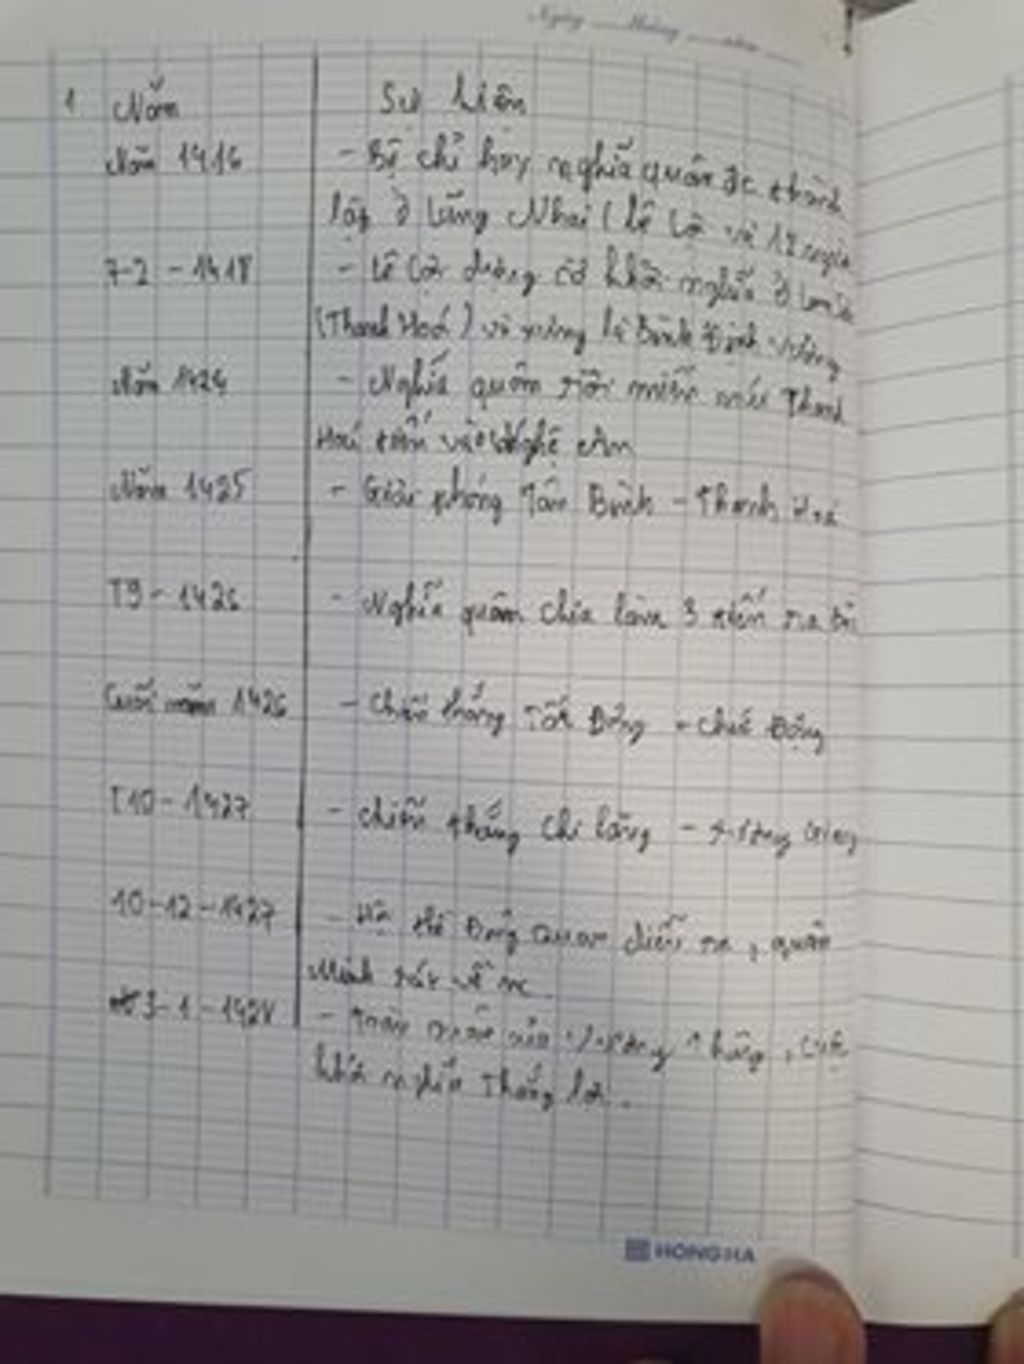 Ngày Tháng năm
1 Năm Sự kiện
Năm 1416 - Bộ chỉ huy nghĩa quân đc thành
lập ở Lũng Nhai (Lê Lợi và 18 người
7-2-1418 - Lê Lợi dựng cờ khởi nghĩa ở
(Thanh Hoá) và xưng là Bình Định Vương
Năm 1424 - Nghĩa quân rời miền núi Thanh
Hoá tiến vào Nghệ An
Năm 1425 - Giải phóng Tân Bình - Thanh Hoá
T9-1426 - Nghĩa quân chia làm 3 tiến ra
Cuối năm 1426 - Chiến thắng Tốt Động - Chúc Động
T10-1427 - Chiến thắng Chi Lăng - Xương Giang
10-12-1427 - Hội thề Đông Quan diễn ra, quân
Minh rút về nc.
3-1-1428 - Toán quân của Vương Thông,
khởi nghĩa thắng lợi.
HONG HA